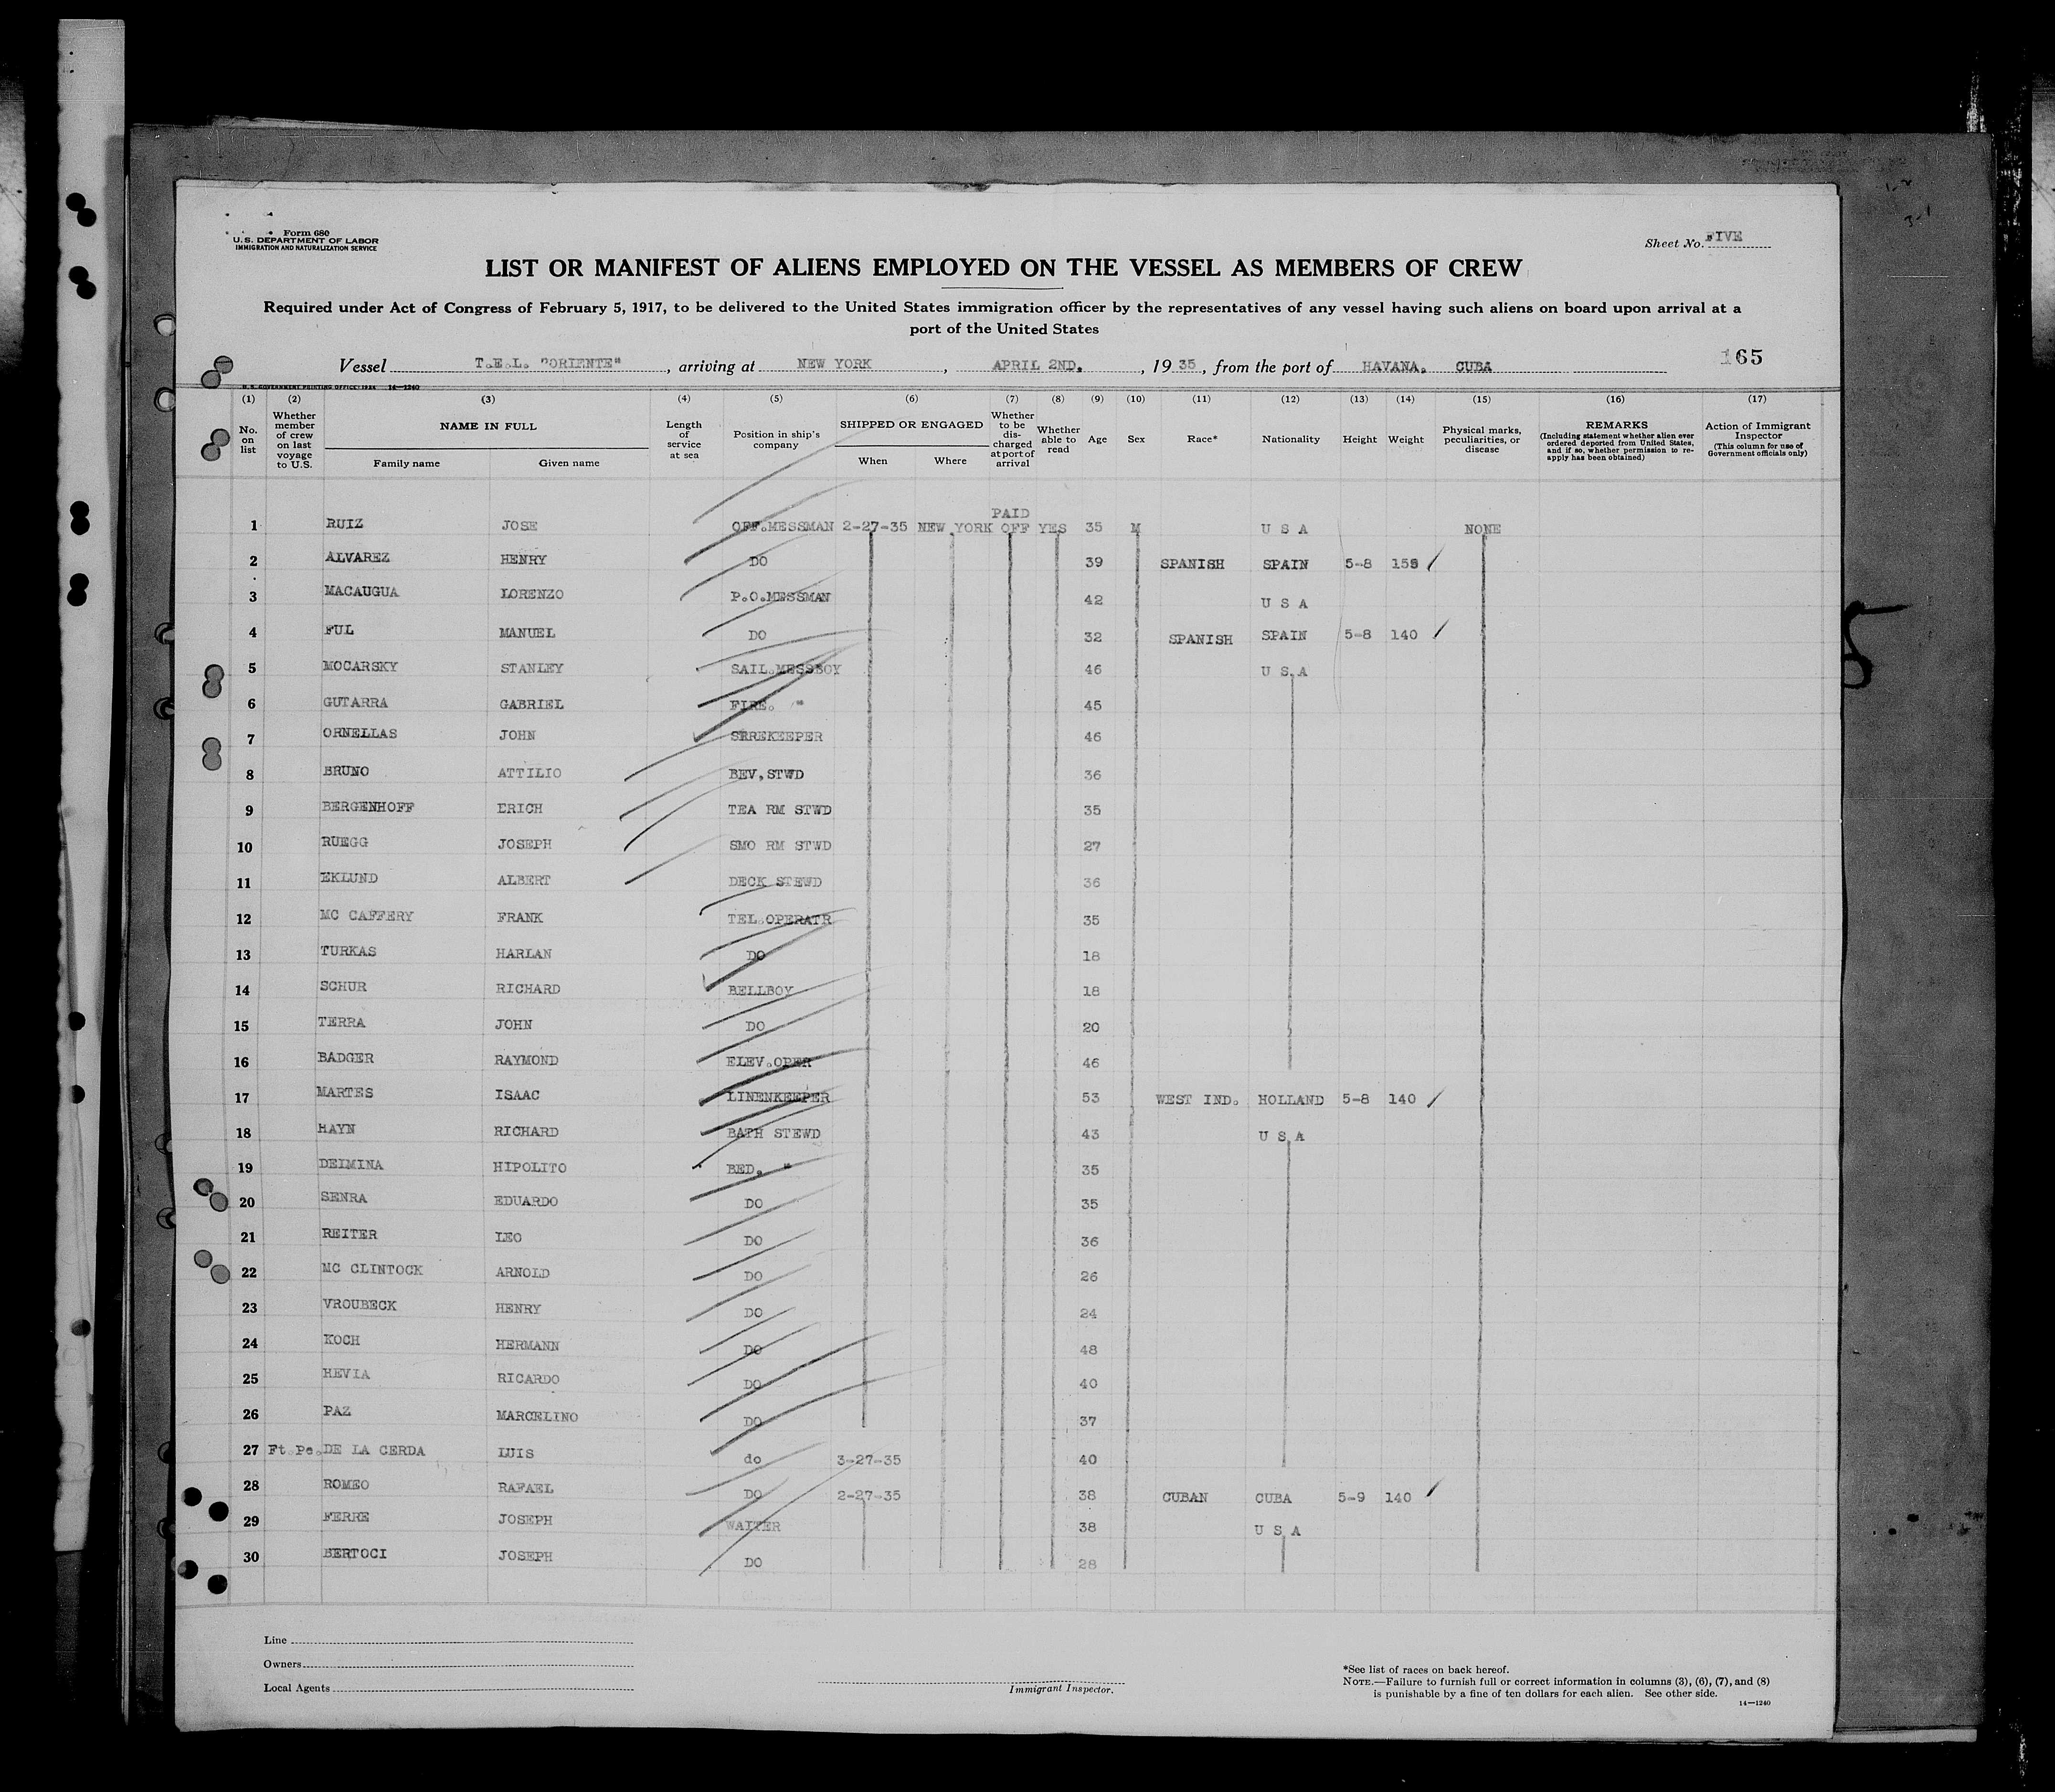 Form 680
U. S. DEPARTMENT OF LABOR
IMMIGRATION AND NATURALIZATION SERVICE
Sheet No. FIVE
LIST OR MANIFEST OF ALIENS EMPLOYED ON THE VESSEL AS MEMBERS OF CREW
Required under Act of Congress of February 5, 1917, to be delivered to the United States immigration officer by the representatives of any vessel having such aliens on board upon arrival at a
port of the United States
Vessel T.E.L. "ORIENTE", arriving at NEW YORK, APRIL 2ND., 1935, from the port of HAVANA, CUBA
165
U. S. GOVERNMENT PRINTING OFFICE: 1934 14—1240
(1) No. on list
(2) Whether member of crew on last voyage to U.S.
(3) NAME IN FULL Family name Given name
(4) Length of service at sea
(5) Position in ship's company
(6) SHIPPED OR ENGAGED When Where
(7) Whether to be discharged at port of arrival
(8) Whether able to read
(9) Age
(10) Sex
(11) Race*
(12) Nationality
(13) Height
(14) Weight
(15) Physical marks, peculiarities, or disease
(16) REMARKS (Including statement whether alien ever ordered deported from United States, and if so, whether permission to reapply has been obtained)
(17) Action of Immigrant Inspector (This column for use of Government officials only)
1 RUIZ JOSE OFF.MESSMAN 2-27-35 NEW YORK PAID OFF YES 35 M U S A NONE
2 ALVAREZ HENRY DO 39 SPANISH SPAIN 5-8 155
3 MACAUGUA LORENZO P.O.MESSMAN 42 U S A
4 FUL MANUEL DO 32 SPANISH SPAIN 5-8 140
5 MOCARSKY STANLEY SAIL.MESSBOY 46 U S A
6 GUTARRA GABRIEL FIRE. " 45
7 ORNELLAS JOHN SRREKEEPER 46
8 BRUNO ATTILIO BEV.STWD 36
9 BERGENHOFF ERICH TEA RM STWD 35
10 RUEGG JOSEPH SMO RM STWD 27
11 EKLUND ALBERT DECK STEWD 36
12 MC CAFFERY FRANK TEL.OPERATR 35
13 TURKAS HARLAN DO 18
14 SCHUR RICHARD BELLBOY 18
15 TERRA JOHN DO 20
16 BADGER RAYMOND ELEV.OPER 46
17 MARTES ISAAC LINENKEEPER 53 WEST IND. HOLLAND 5-8 140
18 HAYN RICHARD BATH STEWD 43 U S A
19 DEIMINA HIPOLITO BED. " 35
20 SENRA EDUARDO DO 35
21 REITER LEO DO 36
22 MC CLINTOCK ARNOLD DO 26
23 VROUBECK HENRY DO 24
24 KOCH HERMANN DO 48
25 HEVIA RICARDO DO 40
26 PAZ MARCELINO DO 37
27 Ft.Pe. DE LA CERDA LUIS do 3-27-35 40
28 ROMEO RAFAEL DO 2-27-35 38 CUBAN CUBA 5-9 140
29 FERRE JOSEPH WAITER 38 U S A
30 BERTOCI JOSEPH DO 28
Line
Owners
Local Agents
Immigrant Inspector.
*See list of races on back hereof.
NOTE.—Failure to furnish full or correct information in columns (3), (6), (7), and (8)
is punishable by a fine of ten dollars for each alien. See other side.
14—1240